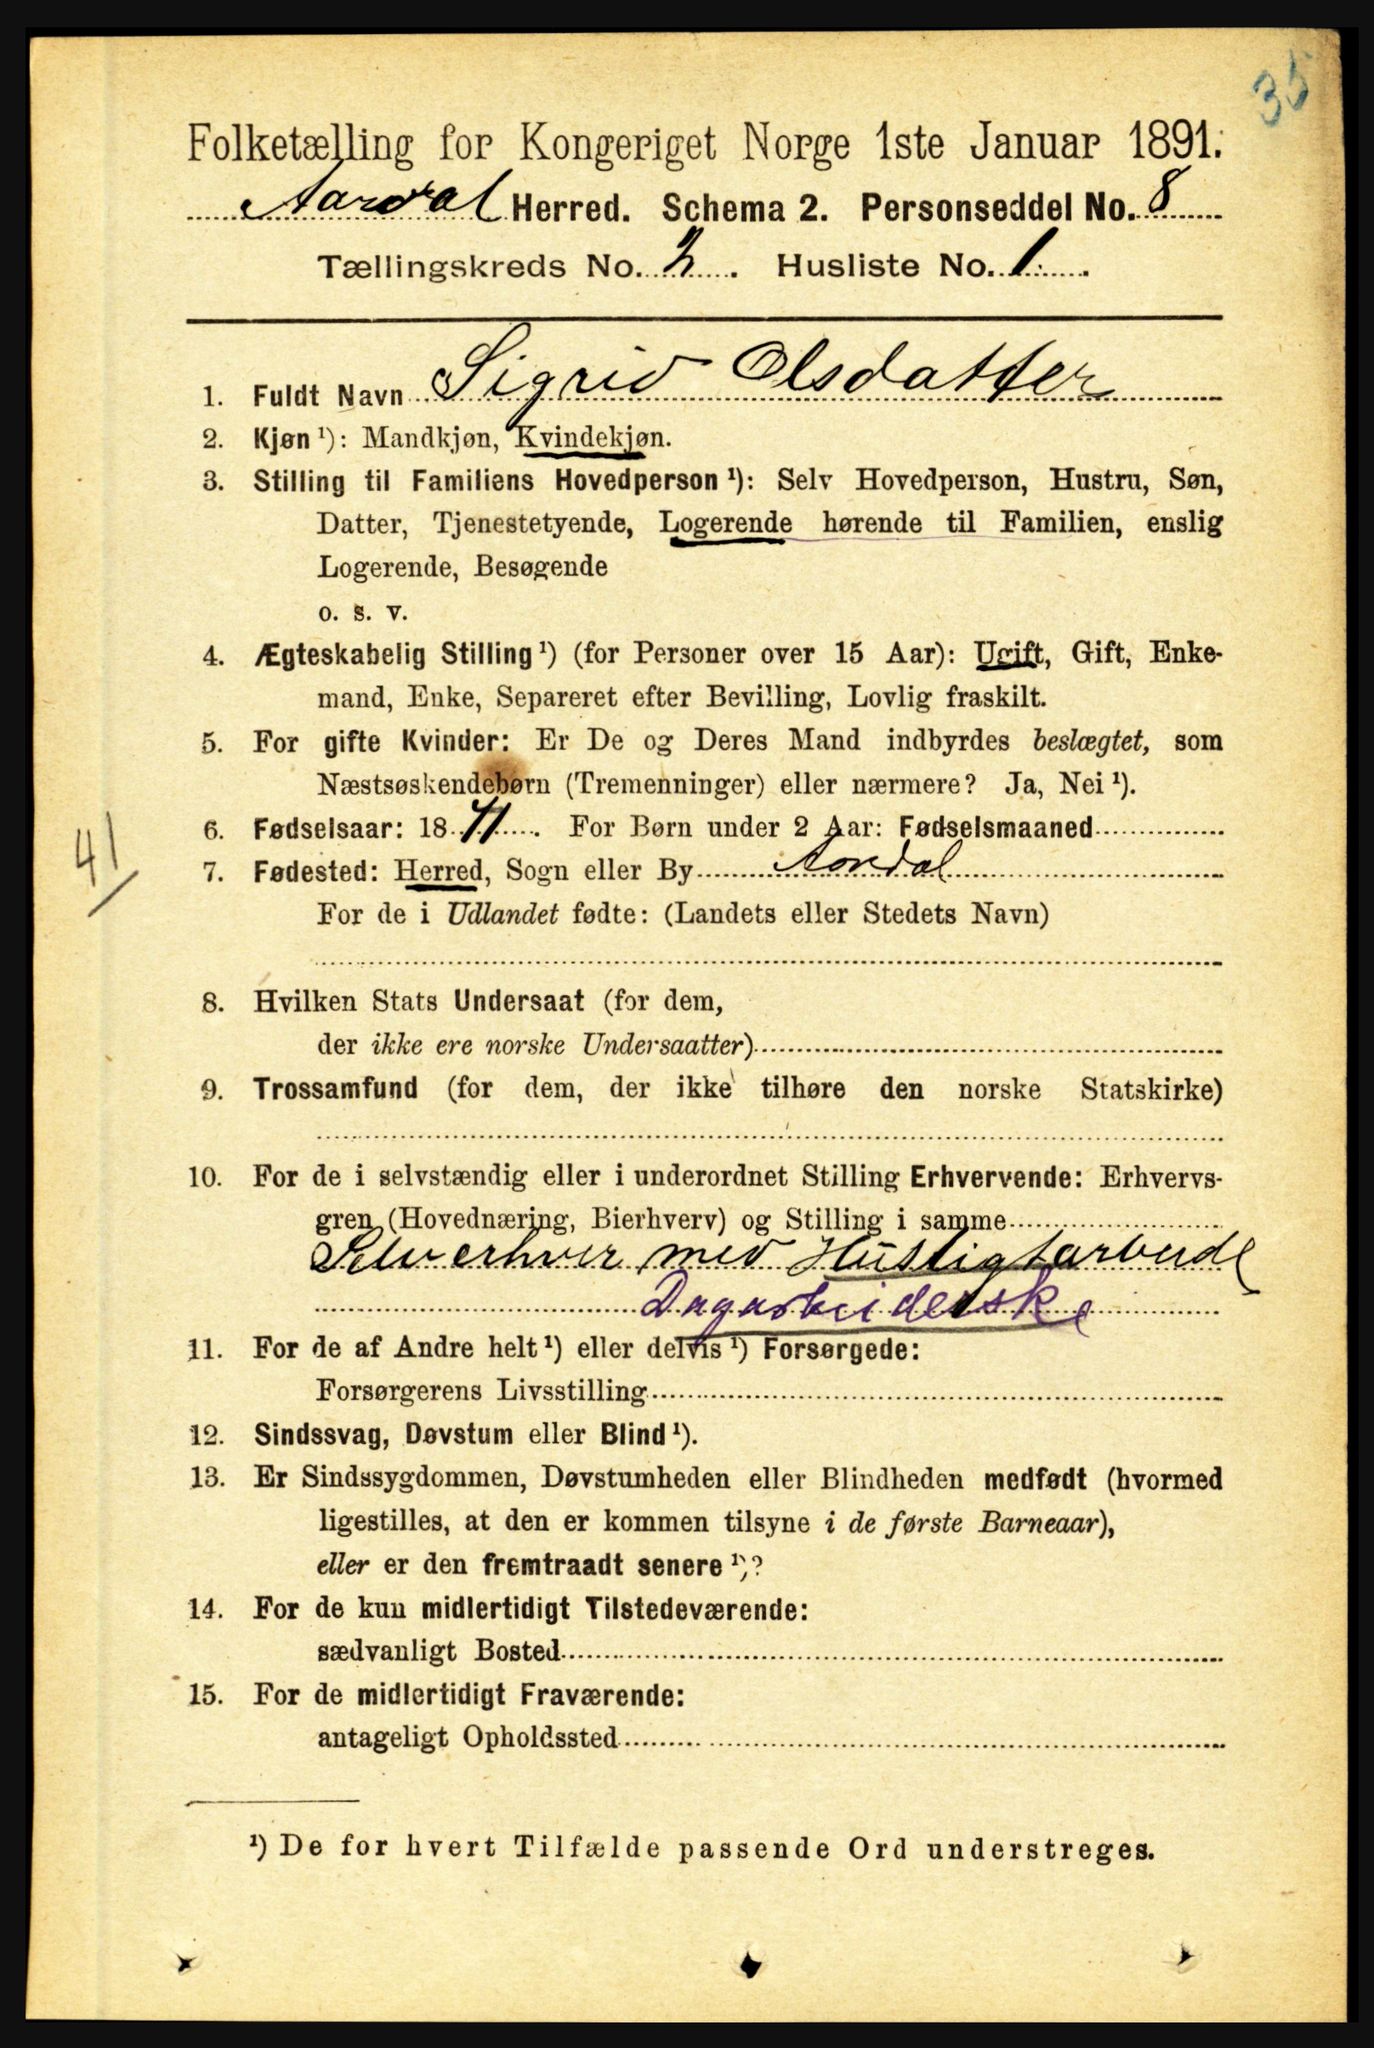 35
Folketælling for Kongeriget Norge 1ste Januar 1891.
Aardal Herred. Schema 2. Personseddel No. 8
Tællingskreds No. 2. Husliste No. 1.
1. Fuldt Navn Sigrid Olsdatter
2. Kjøn ¹): Mandkjøn, Kvindekjøn.
3. Stilling til Familiens Hovedperson ¹): Selv Hovedperson, Hustru, Søn,
Datter, Tjenestetyende, Logerende hørende til Familien, enslig
Logerende, Besøgende
o. s. v.
4. Ægteskabelig Stilling ¹) (for Personer over 15 Aar): Ugift, Gift, Enke-
mand, Enke, Separeret efter Bevilling, Lovlig fraskilt.
5. For gifte Kvinder: Er De og Deres Mand indbyrdes beslægtet, som
Næstsøskendebørn (Tremenninger) eller nærmere? Ja, Nei ¹).
6. Fødselsaar: 1841. For Børn under 2 Aar: Fødselsmaaned
41
7. Fødested: Herred, Sogn eller By Aardal
For de i Udlandet fødte: (Landets eller Stedets Navn)
8. Hvilken Stats Undersaat (for dem,
der ikke ere norske Undersaatter)
9. Trossamfund (for dem, der ikke tilhøre den norske Statskirke)
10. For de i selvstændig eller i underordnet Stilling Erhvervende: Erhvervs-
gren (Hovednæring, Bierhverv) og Stilling i samme
Selverhver med Husligtarbeide
Dagarbeiderske
11. For de af Andre helt ¹) eller delvis ¹) Forsørgede:
Forsørgerens Livsstilling
12. Sindssvag, Døvstum eller Blind ¹).
13. Er Sindssygdommen, Døvstumheden eller Blindheden medfødt (hvormed
ligestilles, at den er kommen tilsyne i de første Barneaar),
eller er den fremtraadt senere ¹)?
14. For de kun midlertidigt Tilstedeværende:
sædvanligt Bosted
15. For de midlertidigt Fraværende:
antageligt Opholdssted
¹) De for hvert Tilfælde passende Ord understreges.